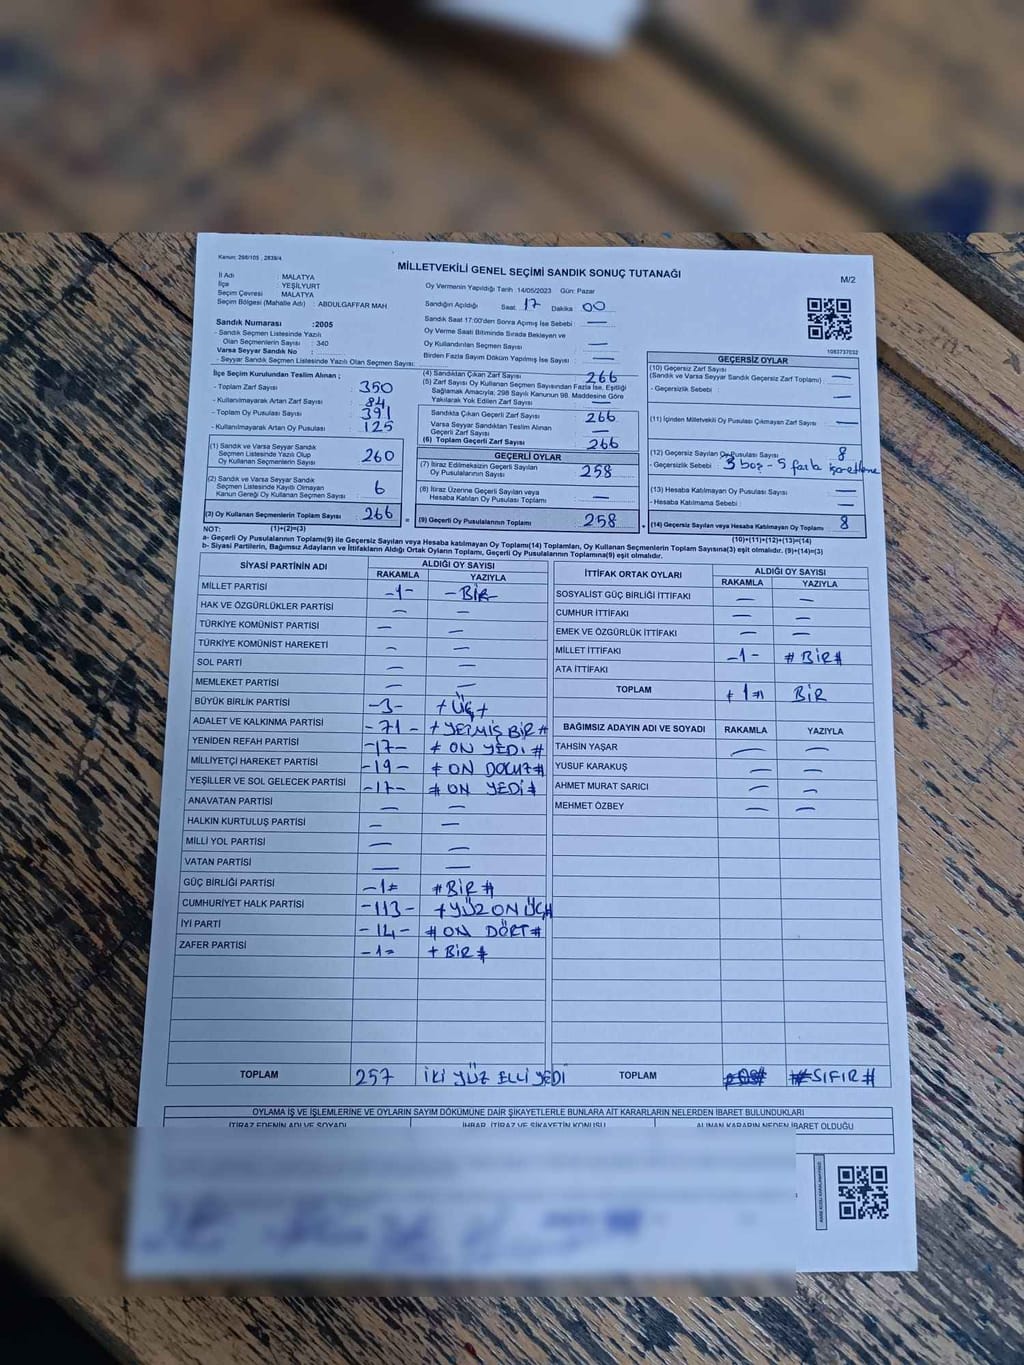 Kanun: 298/105 , 2839/4
MİLLETVEKİLİ GENEL SEÇİMİ SANDIK SONUÇ TUTANAĞI
M/2
İl Adı : MALATYA
İlçe : YEŞİLYURT
Seçim Çevresi : MALATYA
Seçim Bölgesi (Mahalle Adı) : ABDULGAFFAR MAH.
Sandık Numarası :2005
- Sandık Seçmen Listesinde Yazılı
Olan Seçmenlerin Sayısı : 340
Varsa Seyyar Sandık No :
- Seyyar Sandık Seçmen Listesinde Yazılı Olan Seçmen Sayısı:
Oy Vermenin Yapıldığı Tarih :14/05/2023 Gün: Pazar
Sandığın Açıldığı Saat: 17 Dakika 00
Sandık Saat 17:00'den Sonra Açılmış İse Sebebi : —
Oy Verme Saati Bitiminde Sırada Bekleyen ve
Oy Kullandırılan Seçmen Sayısı : —
Birden Fazla Sayım Döküm Yapılmış İse Sayısı : —
1083737032
İlçe Seçim Kurulundan Teslim Alınan ;
- Toplam Zarf Sayısı : 350
- Kullanılmayarak Artan Zarf Sayısı : 84
- Toplam Oy Pusulası Sayısı : 391
- Kullanılmayarak Artan Oy Pusulası : 125
(1) Sandık ve Varsa Seyyar Sandık
Seçmen Listesinde Yazılı Olup
Oy Kullanan Seçmenlerin Sayısı 260
(2) Sandık ve Varsa Seyyar Sandık
Seçmen Listesinde Kayıtlı Olmayan
Kanun Gereği Oy Kullanan Seçmen Sayısı 6
(3) Oy Kullanan Seçmenlerin Toplam Sayısı 266 =
(1)+(2)=(3)
(4) Sandıktan Çıkan Zarf Sayısı 266
(5) Zarf Sayısı Oy Kullanan Seçmen Sayısından Fazla İse, Eşitliği
Sağlamak Amacıyla; 298 Sayılı Kanunun 98. Maddesine Göre
Yakılarak Yok Edilen Zarf Sayısı —
Sandıkta Çıkan Geçerli Zarf Sayısı 266
Varsa Seyyar Sandıktan Teslim Alınan
Geçerli Zarf Sayısı —
(6) Toplam Geçerli Zarf Sayısı 266
GEÇERLİ OYLAR
(7) İtiraz Edilmeksizin Geçerli Sayılan
Oy Pusulalarının Sayısı 258
(8) İtiraz Üzerine Geçerli Sayılan veya
Hesaba Katılan Oy Pusulası Toplamı —
(9) Geçerli Oy Pusulalarının Toplamı 258
GEÇERSİZ OYLAR
(10) Geçersiz Zarf Sayısı
(Sandık ve Varsa Seyyar Sandık Geçersiz Zarf Toplamı) —
- Geçersizlik Sebebi : —
(11) İçinden Milletvekili Oy Pusulası Çıkmayan Zarf Sayısı —
(12) Geçersiz Sayılan Oy Pusulası Sayısı 8
- Geçersizlik Sebebi : 3 boş - 5 fazla işaretleme
(13) Hesaba Katılmayan Oy Pusulası Sayısı —
- Hesaba Katılmama Sebebi : —
(14) Geçersiz Sayılan veya Hesaba Katılmayan Oy Toplamı 8
(10)+(11)+(12)+(13)=(14)
NOT:
a- Geçerli Oy Pusulalarının Toplamı(9) ile Geçersiz Sayılan veya Hesaba katılmayan Oy Toplamı(14) Toplamları, Oy Kullanan Seçmenlerin Toplam Sayısına(3) eşit olmalıdır. (9)+(14)=(3)
b- Siyasi Partilerin, Bağımsız Adayların ve İttifakların Aldığı Ortak Oyların Toplamı, Geçerli Oy Pusulalarının Toplamına(9) eşit olmalıdır.
SİYASİ PARTİNİN ADI ALDIĞI OY SAYISI
RAKAMLA YAZIYLA
MİLLET PARTİSİ -1- - BİR-
HAK VE ÖZGÜRLÜKLER PARTİSİ — —
TÜRKİYE KOMÜNİST PARTİSİ — —
TÜRKİYE KOMÜNİST HAREKETİ — —
SOL PARTİ — —
MEMLEKET PARTİSİ — —
BÜYÜK BİRLİK PARTİSİ -3- # ÜÇ #
ADALET VE KALKINMA PARTİSİ -71- # YETMİŞ BİR #
YENİDEN REFAH PARTİSİ -17- # ON YEDİ #
MİLLİYETÇİ HAREKET PARTİSİ -19- # ON DOKUZ #
YEŞİLLER VE SOL GELECEK PARTİSİ -17- # ON YEDİ #
ANAVATAN PARTİSİ — —
HALKIN KURTULUŞ PARTİSİ — —
MİLLİ YOL PARTİSİ — —
VATAN PARTİSİ — —
GÜÇ BİRLİĞİ PARTİSİ -1= # BİR #
CUMHURİYET HALK PARTİSİ -113- # YÜZ ON ÜÇ #
İYİ PARTİ -14- # ON DÖRT #
ZAFER PARTİSİ -1= # BİR #
TOPLAM 257 İKİ YÜZ ELLİ YEDİ
İTTİFAK ORTAK OYLARI ALDIĞI OY SAYISI
RAKAMLA YAZIYLA
SOSYALİST GÜÇ BİRLİĞİ İTTİFAKI — —
CUMHUR İTTİFAKI — —
EMEK VE ÖZGÜRLÜK İTTİFAKI — —
MİLLET İTTİFAKI -1- # BİR #
ATA İTTİFAKI
TOPLAM # 1 # BİR
BAĞIMSIZ ADAYIN ADI VE SOYADI RAKAMLA YAZIYLA
TAHSİN YAŞAR — —
YUSUF KARAKUŞ — —
AHMET MURAT SARICI — —
MEHMET ÖZBEY — —
TOPLAM # SIFIR #
OYLAMA İŞ VE İŞLEMLERİNE VE OYLARIN SAYIM DÖKÜMÜNE DAİR ŞİKAYETLERLE BUNLARA AİT KARARLARIN NELERDEN İBARET BULUNDUKLARI
İTİRAZ EDENİN ADI VE SOYADI İHBAR, İTİRAZ VE ŞİKAYETİN KONUSU ALINAN KARARIN NEDEN İBARET OLDUĞU